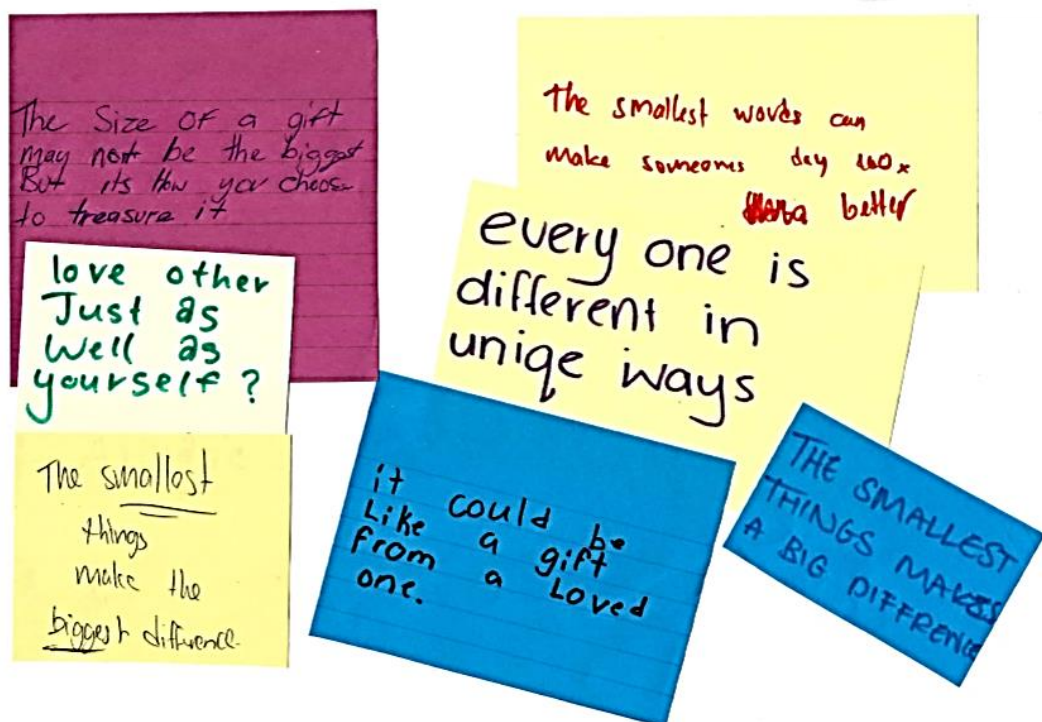 The Size OF a gift
may not be the biggest
But its How you choose
to treasure it
The smallest words can
make someones day 100x
better
every one is
different in
uniqe ways
love other
Just as
well as
yourself?
The smallost
things
make the
biggest difference.
it could be
Like a gift
from a Loved
one.
THE SMALLEST
THINGS MAKES
A BIG DIFFRENCE